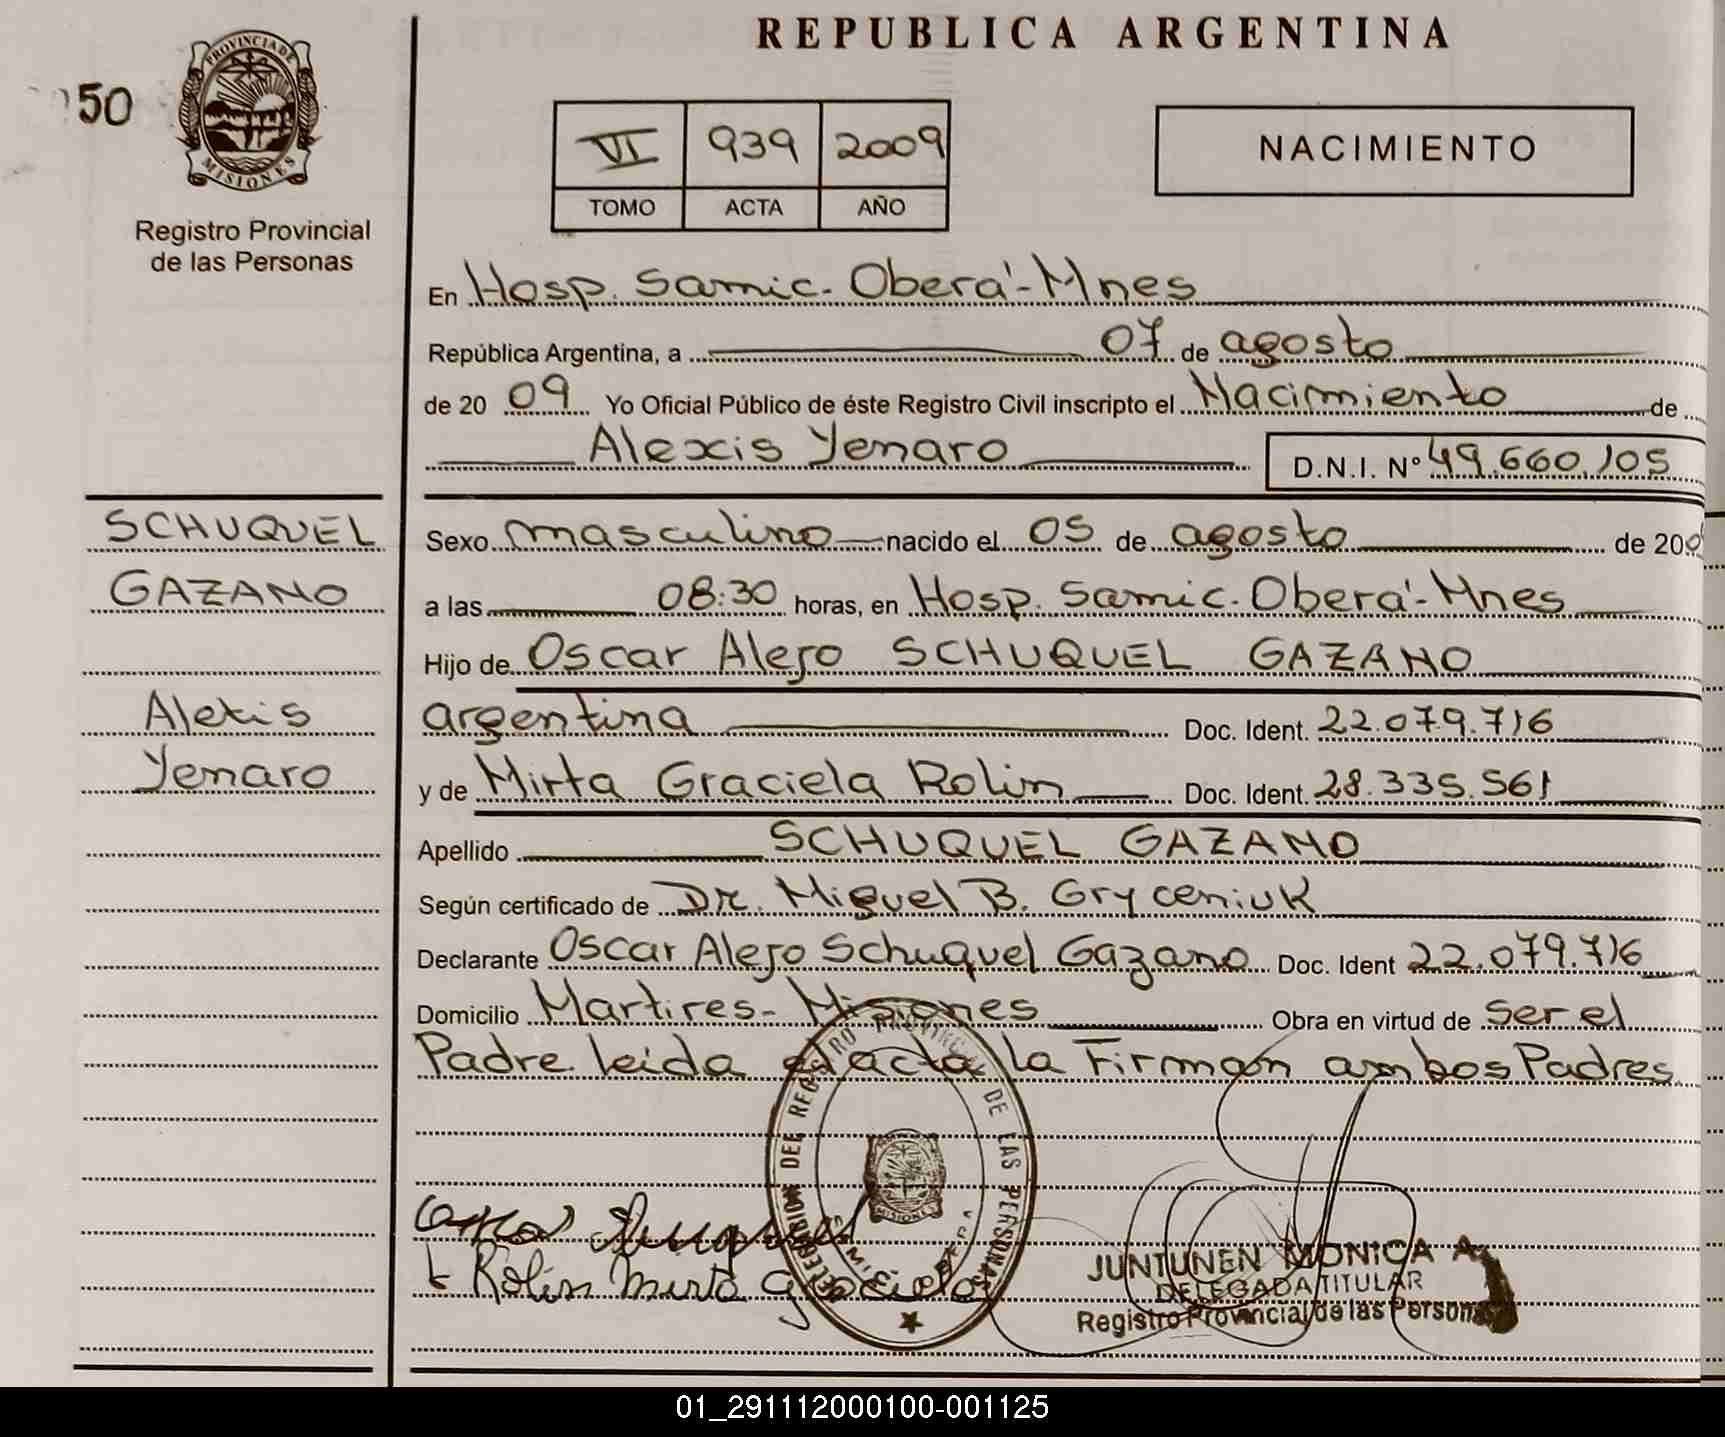 REPUBLICA ARGENTINA
50
PROVINCIA DE
MISIONES
Registro Provincial
de las Personas
VI 939 2009
TOMO ACTA AÑO
NACIMIENTO
En Hosp. Samic. Oberá-Mnes
República Argentina, a 07 de agosto
de 20 09 Yo Oficial Público de éste Registro Civil inscripto el Nacimiento de
Alexis Yenaro D.N.I. Nº 49.660.105
SCHUQUEL
GAZANO
Alexis
Yenaro
Sexo masculino nacido el 05 de agosto de 200
a las 08:30 horas, en Hosp. Samic. Oberá-Mnes
Hijo de Oscar Alejo SCHUQUEL GAZANO
argentina Doc. Ident. 22.079.716
y de Mirta Graciela Rolin Doc. Ident. 28.335.561
Apellido SCHUQUEL GAZANO
Según certificado de Dr. Miguel B. Gryceniuk
Declarante Oscar Alejo Schuquel Gazano Doc. Ident 22.079.716
Domicilio Martires-Misiones Obra en virtud de ser el
Padre leida el acta la Firman ambos Padres
REGISTRO PROVINCIAL DE LAS PERSONAS
MISIONES
Rolin Mirta
JUNTUNEN MONICA A.
DELEGADA TITULAR
Registro Provincial de las Personas
01_291112000100-001125